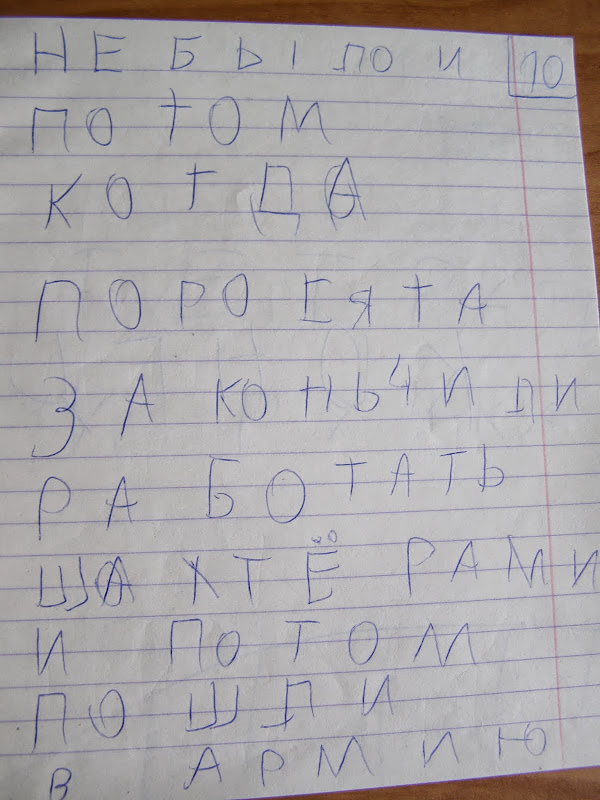 НЕ БЫЛО И 10
ПОТОМ
КОГДА
ПОРОСЯТА
ЗАКОНЬЧИЛИ
РАБОТАТЬ
ШАХТЁРАМИ
И ПОТОМ
ПОШЛИ
В АРМИЮ